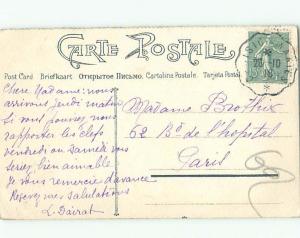 CARTE POSTALE
Post Card Briefkaart Открытое Письмо. Cartolina Postale. Tarjeta Postal
20-10
Chere Madame nous
arrivons jeudi matin
Si vous pouvez nous
rapporter les clefs
vendredi ou Samedi vous
seriez bien aimable
Je vous remercie d'avance
Recevez mes salutations
L. Dairat
Madame Brothix
62 Bd de l'hopital
Paris